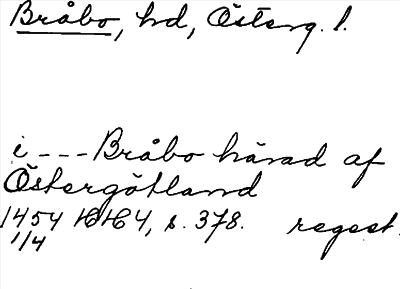 Bråbo, hd, Österg. l.
i --- Bråbo härad af
Östergötland
1454 HH 4, s. 378. regest.
1/4